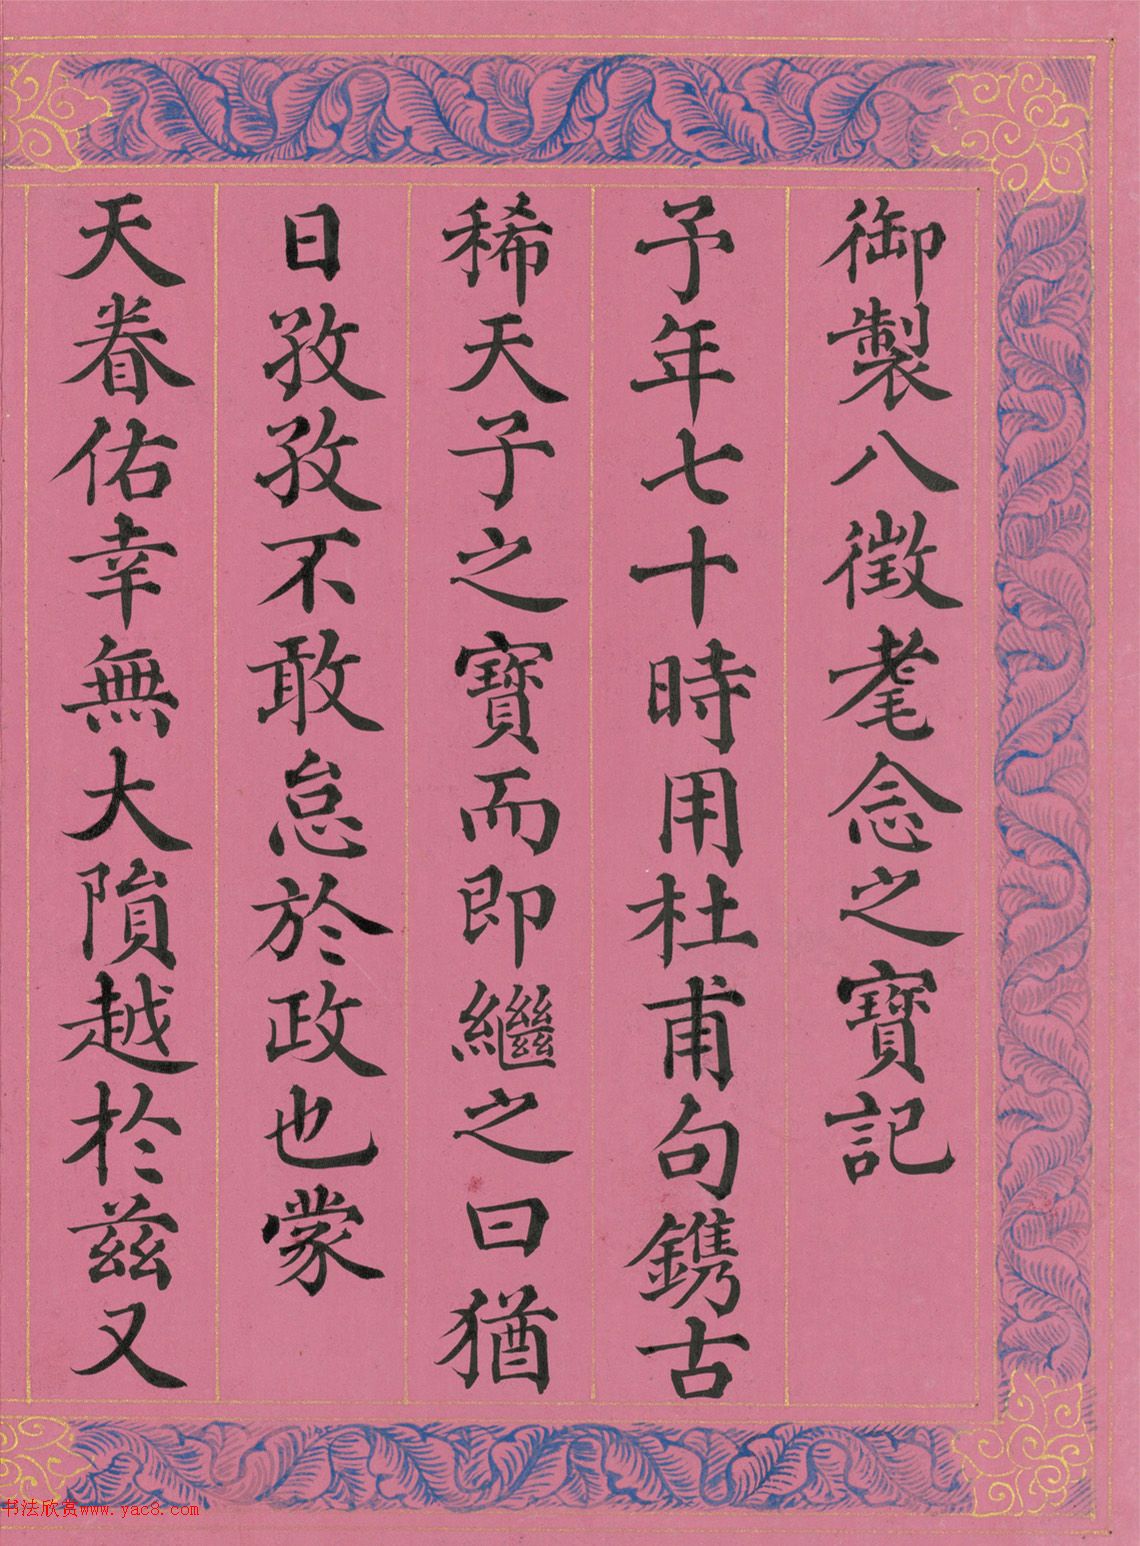 御製八徵耄念之寶記
予年七十時用杜甫句鐫古
稀天子之寶而即繼之曰猶
日孜孜不敢怠於政也蒙
天眷佑幸無大隕越於茲又
书法欣赏www.yac8.com